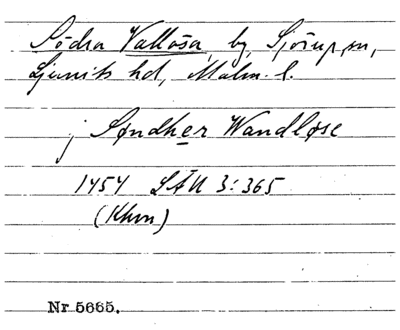 Södra Vallösa, by, Sjörup sn,
Ljunits hd, Malm. l.
j Søndher Wandløse
1454 LÄU 3:365
(Khvn)
Nr 5665.